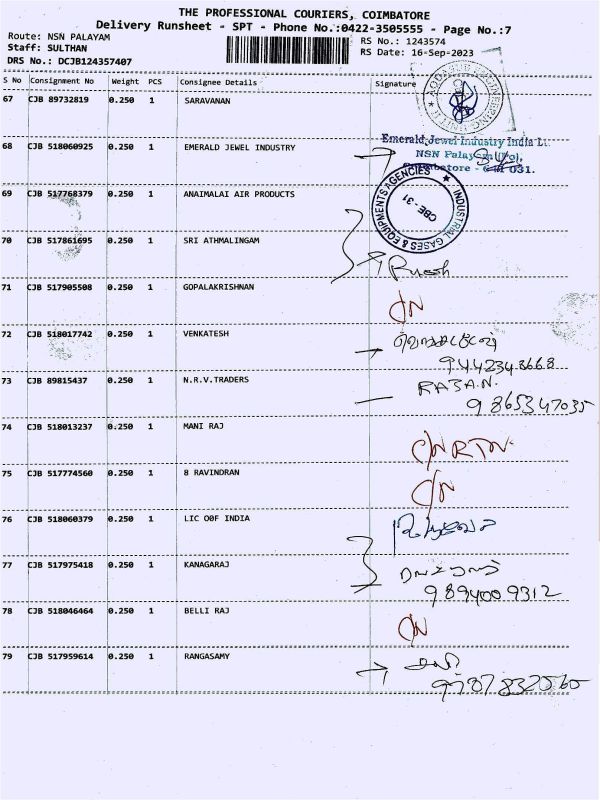 THE PROFESSIONAL COURIERS, COIMBATORE
Delivery Runsheet - SPT - Phone No.:0422-3505555 - Page No.:7
Route: NSN PALAYAM
Staff: SULTHAN
DRS No.: DCJB124357407
RS No.: 1243574
RS Date: 16-Sep-2023
S No Consignment No Weight PCS Consignee Details Signature
67 CJB 89732819 0.250 1 SARAVANAN
68 CJB 518060925 0.250 1 EMERALD JEWEL INDUSTRY
Emerald Jewel Industry India Lt.
NSN Palayam (Po),
Coimbatore - 641 031.
69 CJB 517768379 0.250 1 ANAIMALAI AIR PRODUCTS
INDUSTRIAL GASES & EQUIPMENTS AGENCIES ★
CBE - 31
70 CJB 517861695 0.250 1 SRI ATHMALINGAM
71 CJB 517905508 0.250 1 GOPALAKRISHNAN
C/N
72 CJB 518017742 0.250 1 VENKATESH
9442343668
73 CJB 89815437 0.250 1 N.R.V.TRADERS
RAJA.N.
9865347035
74 CJB 518013237 0.250 1 MANI RAJ
C/N RTN
75 CJB 517774560 0.250 1 8 RAVINDRAN
C/N
76 CJB 518060379 0.250 1 LIC O0F INDIA
77 CJB 517975418 0.250 1 KANAGARAJ
9894009312
78 CJB 518046464 0.250 1 BELLI RAJ
C/N
79 CJB 517959614 0.250 1 RANGASAMY
9787832560